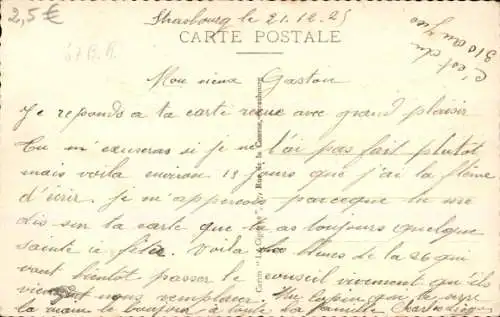 2,5€
Strasbourg le 21.12.25
CARTE POSTALE
C'est du
310 au jus
67 B.R.
Mon vieux Gaston
Je reponds a ta carte recue avec grand plaisir
Tu m'excuseras si je ne t'ai pas fait plutôt
mais voila environ 15 jours que j'ai la flème
d'écrir. je m'apercois parceque tu me
dis sur ta carte que tu as toujours quelque
sainte à fêter. Voila les bleus de la 26 qui
vont bientôt passer le conseil vivement qu'ils
viennent nous remplacer. Un copain qui te serre
la main le bonjour à toute la famille